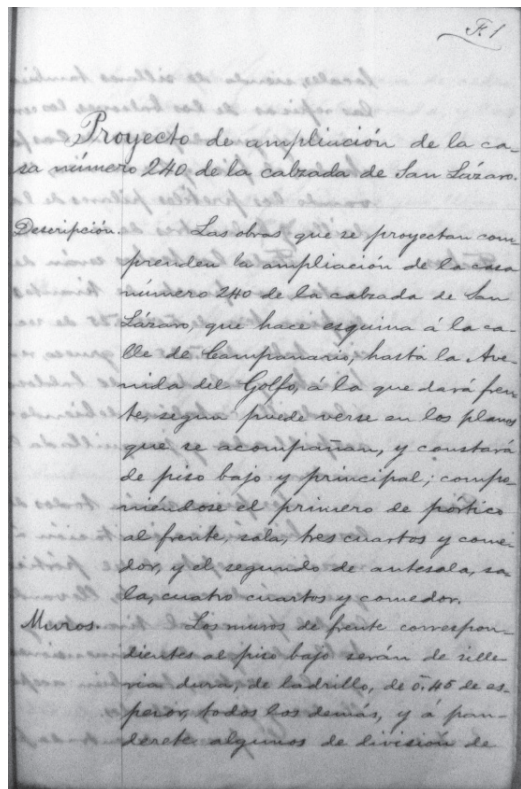 F. 1
Proyecto de ampliación de la ca-
sa número 240 de la calzada de San Lázaro.
Descripción. Las obras que se proyectan com-
prenden la ampliación de la casa
número 240 de la calzada de San
Lázaro, que hace esquina á la ca-
lle de Campanario, hasta la Ave-
nida del Golfo, á la que dará fren-
te, segun puede verse en los planos
que se acompañan, y constará
de piso bajo y principal; compo-
niéndose el primero de pórtico
al frente, sala, tres cuartos y come-
dor, y el segundo de antesala, sa-
la, cuatro cuartos y comedor.
Muros. Los muros de frente correspon-
dientes al piso bajo serán de sille-
ria dura, de ladrillo, de 0.45 de es-
pesor, todos los demás, y á pan-
derete algunos de división de